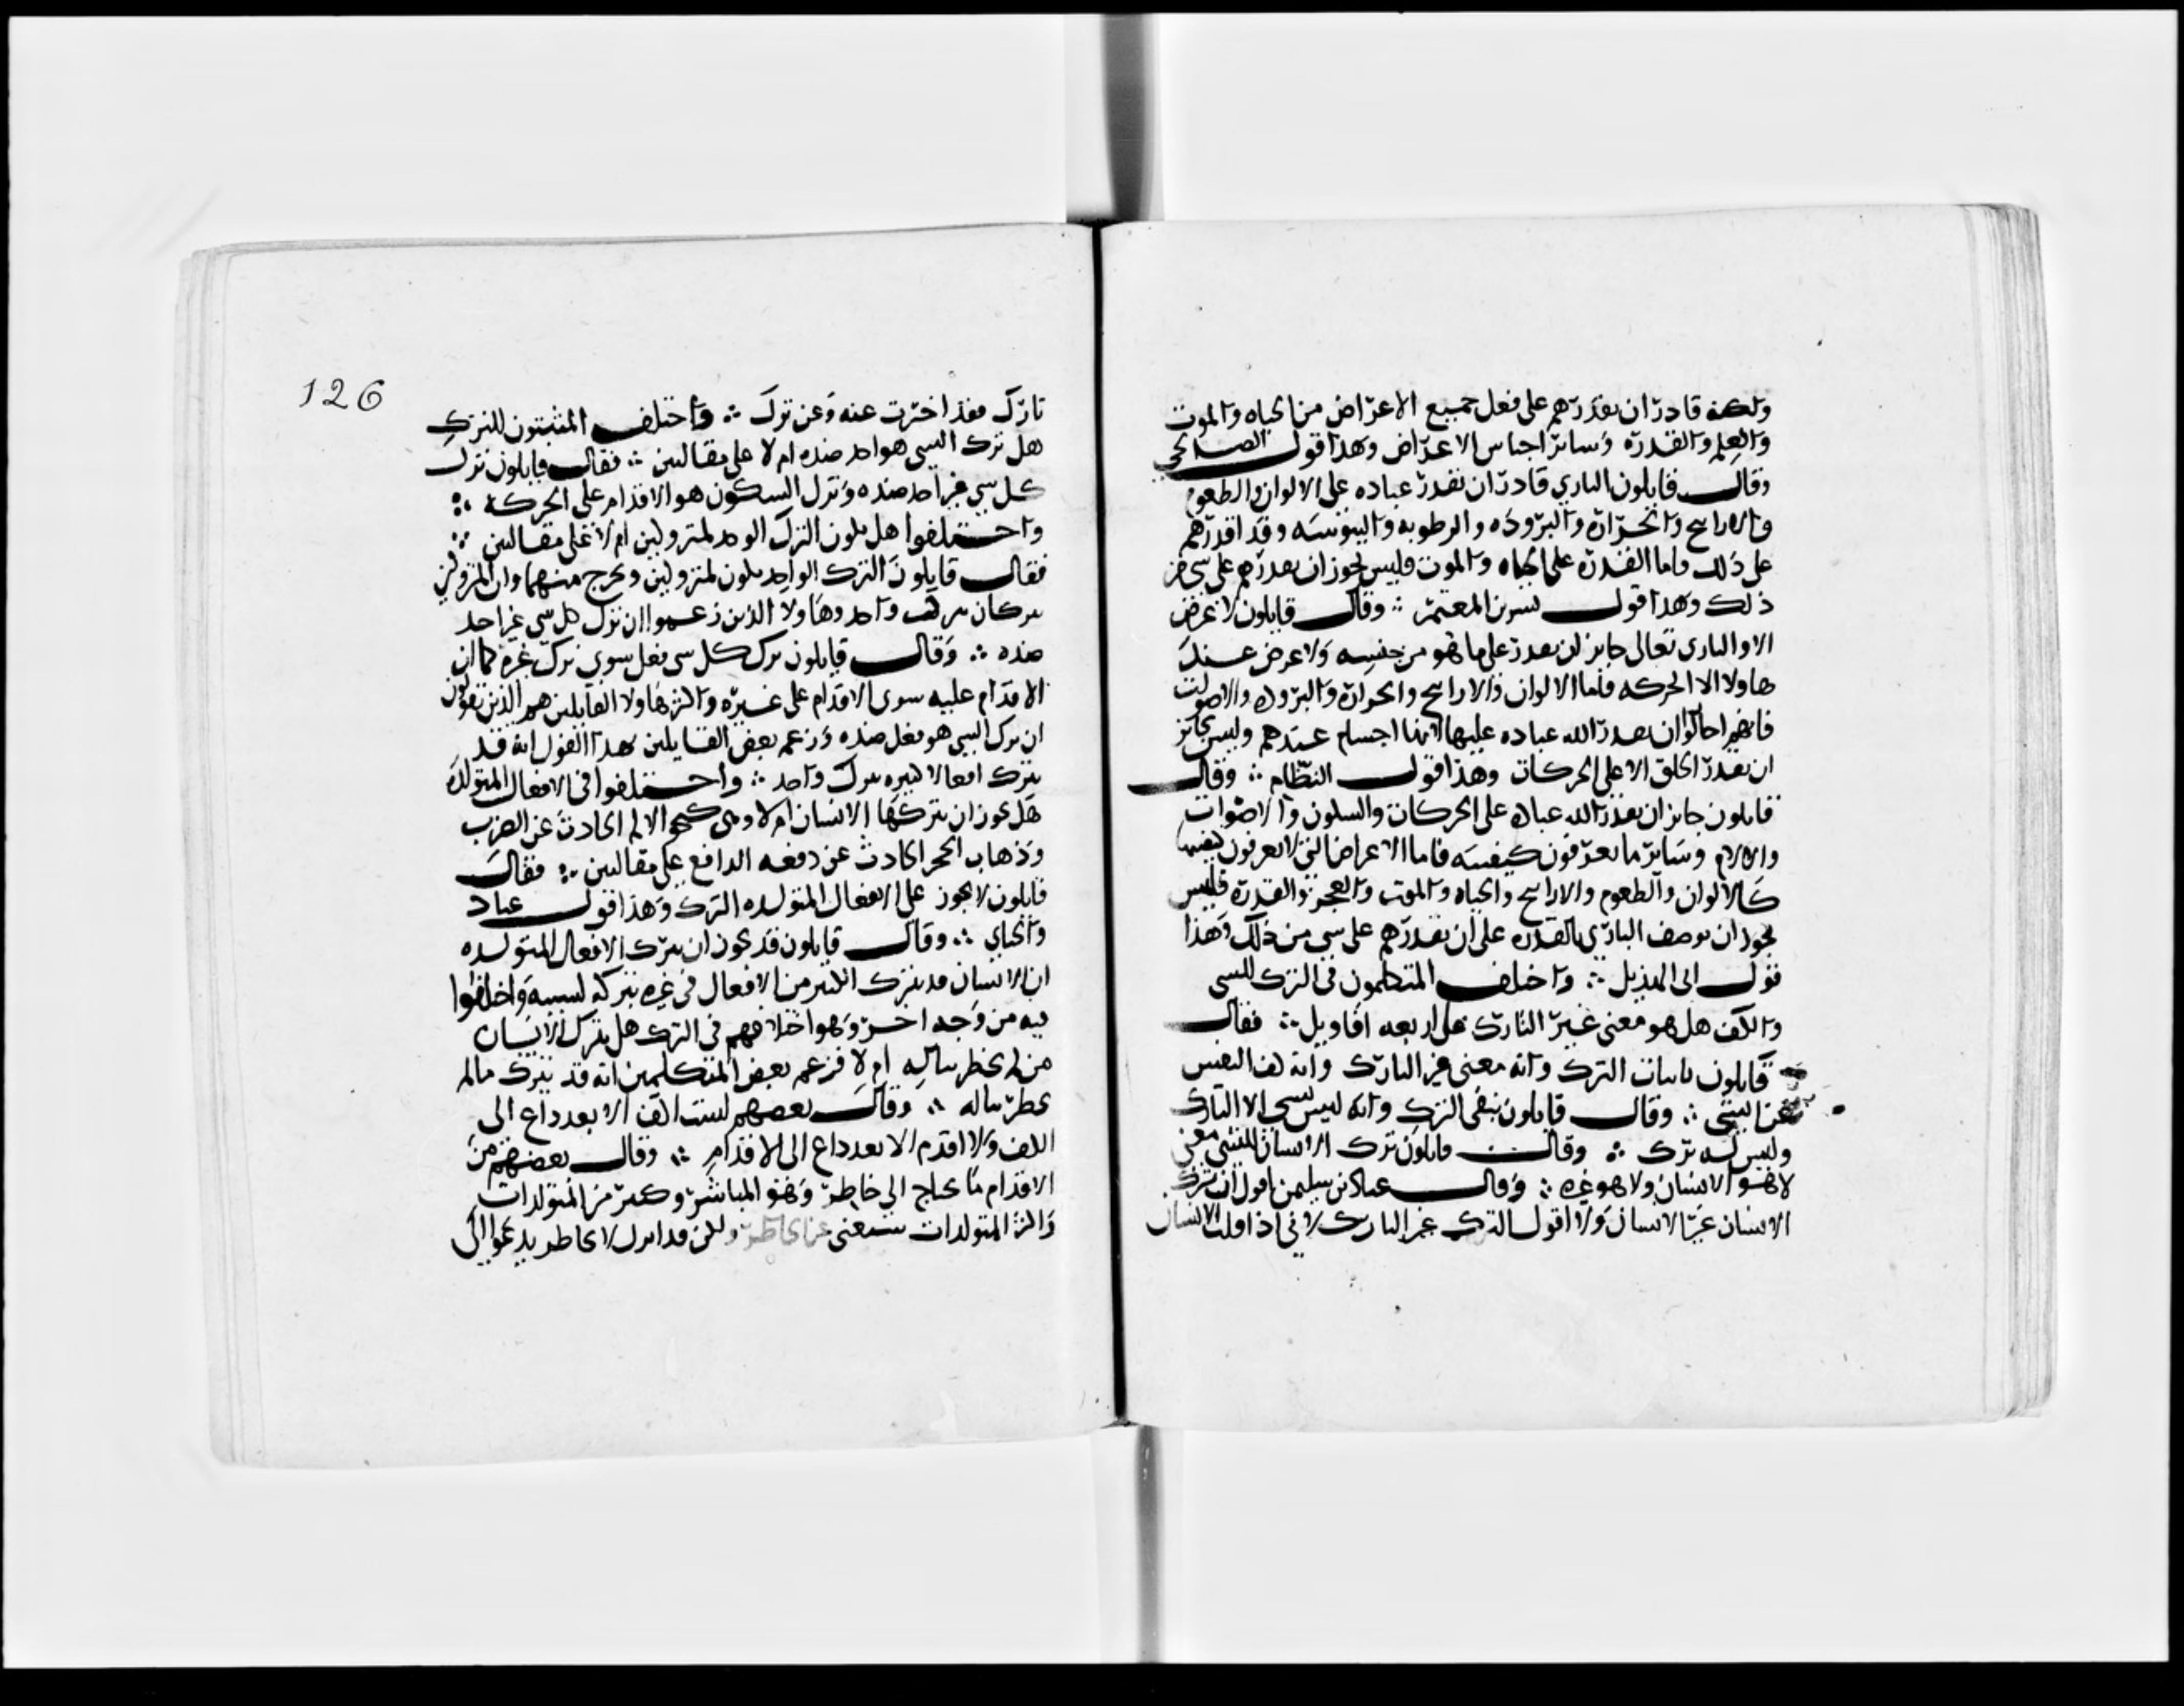 ولكنه قادر ان يقدرهم على فعل جميع الاعراض من الحياه والموت
والعلم والقدره وسائر اجناس الاعراض وهذا قول الصالحي
وقال قايلون الباري قادر ان يقدر عباده على الالوان والطعوم
والاراييح والحراره والبروده والرطوبه واليبوسه وقد اقدرهم
على ذلك فاما القدره على الحياه والموت فليس يجوز ان يقدرهم على شي من
ذلك وهذا قول بشر بن المعتمر ؞ وقال قايلون لا عرض
الا والبارى تعالى جايز ان يقدر على ما هو من جنسه ولا عرض عند
هاولا الا الحركه فاما الالوان والاراييح والحراره والبروده والاصوات
فانهم احالوا ان يقدر الله عباده عليها لانها اجسام عندهم وليس بجائز
ان يقدر الخلق الا على الحركات وهذا قول النظام ؞ وقال
قايلون جايز ان يقدر الله عباده على الحركات والسكون والاصوات
والالام وسائر ما يعرفون كيفيته فاما الاعراض التي لا يعرفون كيفيتها
كالالوان والطعوم والاراييح والحياه والموت والعجز والقدره فليس
يجوز ان يوصف الباري بالقدره على ان يقدرهم على شي من ذلك وهذا
قول ابى الهذيل ؞ واختلف المتكلمون فى الترك للشى
والكف هل هو معنى غير التارك على اربعه اقاويل ؞ فقال
قايلون باثبات الترك وانه معنى غير التارك وانه كف النفس
عن الشى ؞ وقال قايلون بنفى الترك وانه ليس بشي الا التارك
وليس له ترك ؞ وقال قايلون ترك الانسان للشى معنى
لا هو الانسان ولا هو غيره ؞ وقال عباد بن سليمن اقول ان ترك
الانسان غير الانسان ولا اقول الترك غير التارك لانى اذا قلت الانسان
126
تارك فقد اخبرت عنه وعن ترك ؞ واختلف المثبتون للترك
هل ترك الشى هو اخد ضده ام لا على مقالتين ؞ فقال قايلون ترك
كل شي غير اخد ضده وترك السكون هو الاقدام على الحركة ؞
واختلفوا هل يكون الترك الواحد لمتروكين ام لا على مقالتين ؞
فقال قايلون الترك الواحد يكون لمتروكين ويخرج منهما وان المتروكين
يتركان بترك واحد وهاولا الذين زعموا ان ترك كل شي غير اخد
ضده ؞ وقال قايلون ترك كل شى فعل سوى ترك غيره كما ان
الاقدام عليه سوى الاقدام على غيره واكثر هاولا القايلين هم الذين يقولون
ان ترك الشى هو فعل ضده وزعم بعض القايلين بهذا القول انه قد
يترك افعالا كثيره بترك واحد ؞ واختلفوا فى الافعال المتولده
هل يجوز ان يتركها الانسان ام لا وهى كنحو الالم الحادث عن الضرب
وذهاب الحجر الحادث عن دفعه الدافع على مقالتين ؞ فقال
قايلون لا يجوز على الافعال المتولده الترك وهذا قول عباد
والجباي ؞ وقال قايلون قد يجوز ان يترك الافعال المتولده
ان الانسان قد يترك الكثير من الافعال فى غيره بتركه لسببه واختلفوا
فيه من وجه اخر وهو اختلافهم فى الترك هل يترك الانسان
من لم يخطر بباله ام لا فزعم بعض المتكلمين انه قد يترك ما لم
يخطر بباله ؞ وقال بعضهم ليست الكف الا بعد داع الى
الكف ولا اقدم الا بعد داع الى الاقدام ؞ وقال بعضهم من
الاقدام ما يحتاج الى خاطر وهو المباشر وكثير من المتولدات
واكثر المتولدات يستغنى عن الخاطر ولكن قد اترك لا لخاطر يدعو الى